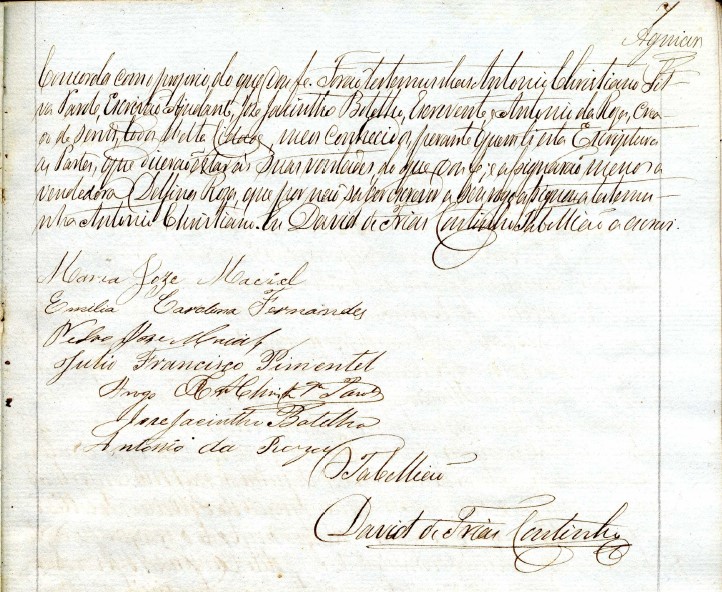 7
Concorda com o proprio, do que dou fe. Forão testemunhas Antonio Christiano Sil-
va Pardo, Escrivão Ajudante, Jose Jacintho Botelho, Escrevente, e Antonio da Roza, Crea-
do de servir, todos desta Cidade, meus conhecidos, perante quem li esta Escriptura
as Partes, que dicerão estar ás suas vontades do que dou fé, e assignarão menos a
vendedora Delfina Roza, que por não saber escrever a seu rogo assignou a testemu-
nha Antonio Christiano. Eu David de Frias Coutinho, Tabellião a escrevi.
Maria Joze Maciel
Emilia Carolina Fernandes
Pedro Jose
Julio Francisco Pimentel
Jose Jacintho Botelho
Antonio da Roza
O Tabellião
David de Frias Coutinho